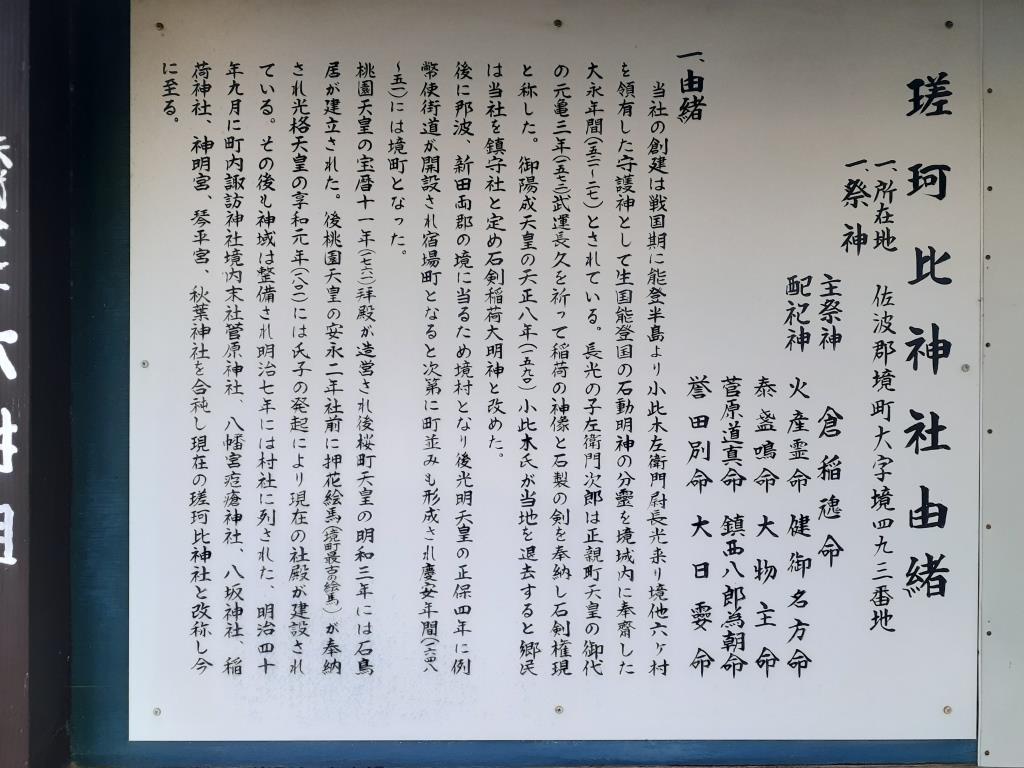 瑳珂比神社由緒
一、所在地　佐波郡境町大字境四九三番地
一、祭神
主祭神　倉稲魂命
配祀神　火産霊命　健御名方命
泰盞鳴命　大物主命
菅原道真命　鎮西八郎為朝命
誉田別命　大日孁命
一、由緒
当社の創建は戦国期に能登半島より小此木左衛門尉長光来り境他六ヶ村
を領有した守護神として生国能登国の石動明神の分霊を境城内に奉齋した
大永年間(一五二一〜二七)とされている。長光の子左衛門次郎は正親町天皇の御代
の元亀三年(一五七二)武運長久を祈って稲荷の神像と石製の剣を奉納し石剣権現
と称した。御陽成天皇の天正八年(一五九〇)小此木氏が当地を退去すると郷民
は当社を鎮守社と定め石剣稲荷大明神と改めた。
後に那波、新田両郡の境に当るため境村となり後光明天皇の正保四年に例
幣使街道が開設され宿場町となると次第に町並みも形成され慶安年間(一六四八
〜五一)には境町となった。
桃園天皇の宝暦十一年(一七六一)拝殿が造営され後桜町天皇の明和三年には石鳥
居が建立された。後桃園天皇の安永二年社前に押花絵馬(境町最古の絵馬)が奉納
され光格天皇の享和元年(一八〇一)には氏子の発起により現在の社殿が建設され
ている。その後も神域は整備され明治七年には村社に列された、明治四十
年九月に町内諏訪神社境内末社菅原神社、八幡宮疱瘡神社、八坂神社、稲
荷神社、神明宮、琴平宮、秋葉神社を合祀し現在の瑳珂比神社と改称し今
に至る。